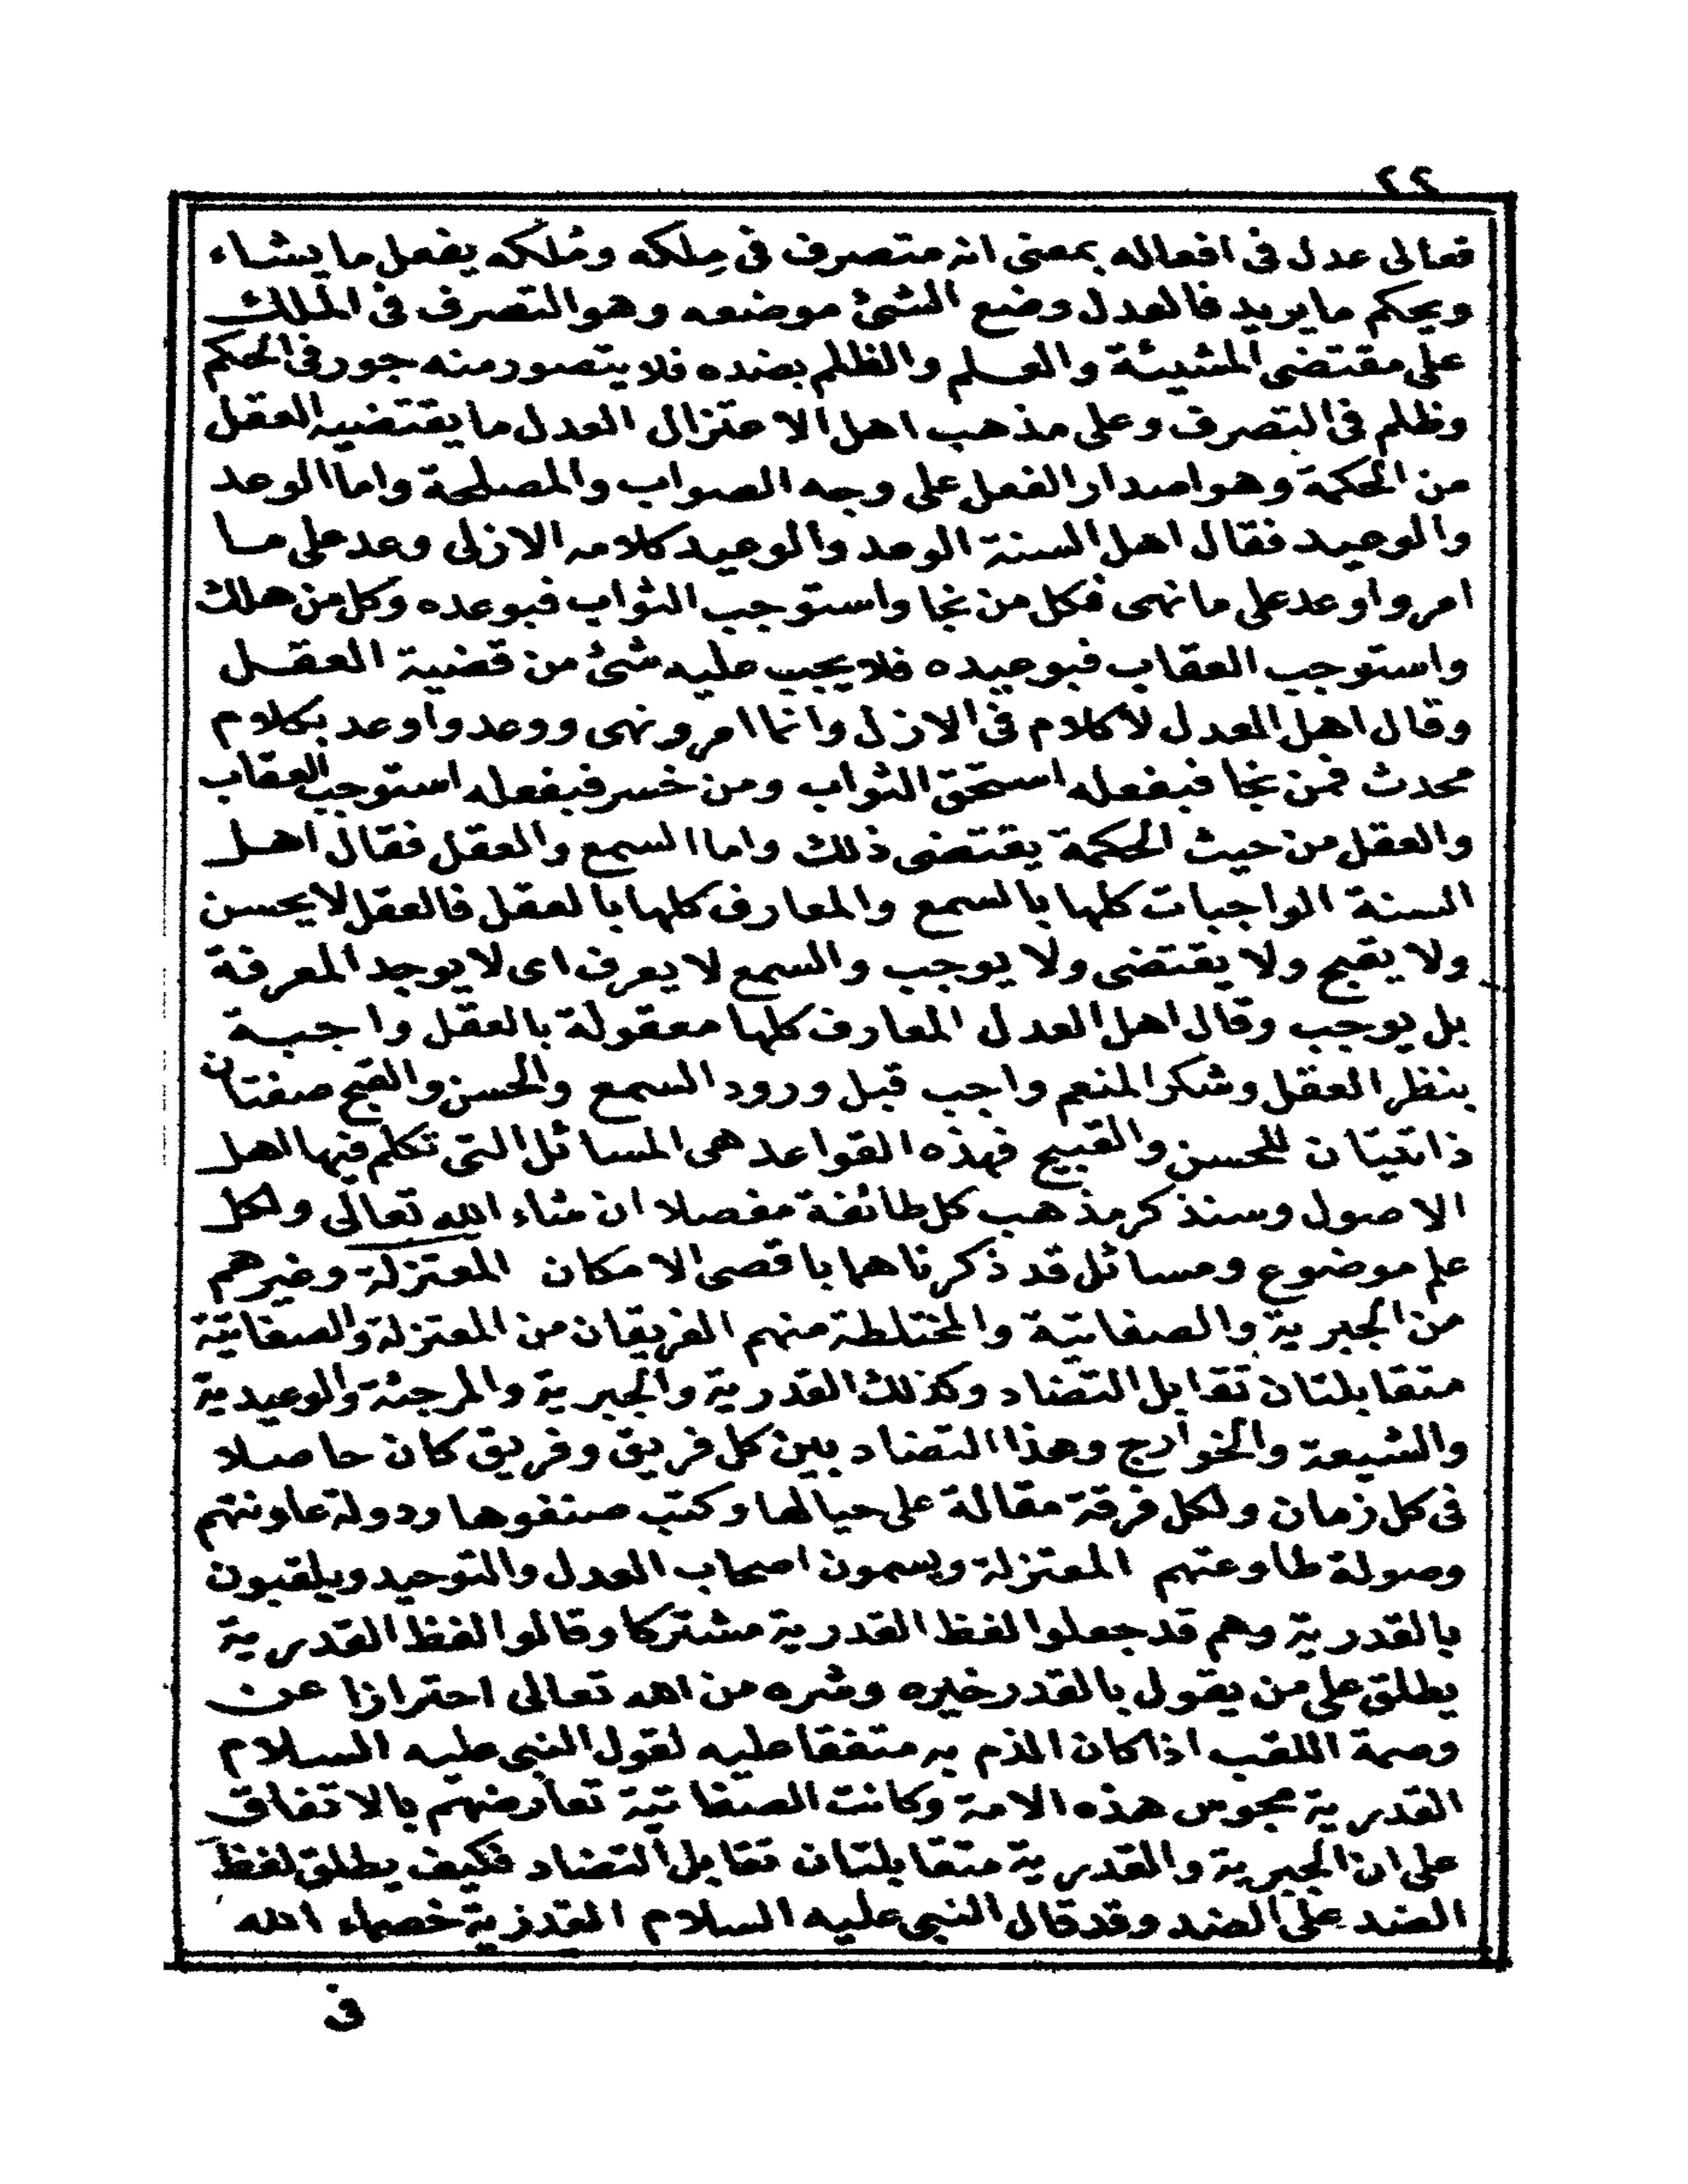 ٢٢
تعالى عدل فى افعاله بمعنى انه متصرف فى مِلكه ومُلكه يفعل ما يشاء
ويحكم ما يريد فالعدل وضع الشئ موضعه وهو التصرف فى الملك
على مقتضى المشيئة والعلم والظلم بضده فلا يتصور منه جور فى الحكم
وظلم فى التصرف وعلى مذهب اهل الاعتزال العدل ما يقتضيه العقل
من الحكمة وهو اصدار الفعل على وجه الصواب والمصلحة واما الوعد
والوعيد فقال اهل السنة الوعد والوعيد كلامه الازلى وعد على ما
امر واوعد على ما نهى فكل من نجا واستوجب الثواب فبوعده وكل من هلك
واستوجب العقاب فبوعيده فلا يجب عليه شئ من قضية العقل
وقال اهل العدل لا كلام فى الازل وانما امر ونهى ووعد واوعد بكلام
محدث فمن نجا فبفعله استحق الثواب ومن خسر فبفعله استوجب العقاب
والعقل من حيث الحكمة يقتضى ذلك واما السمع والعقل فقال اهل
السنة الواجبات كلها بالسمع والمعارف كلها بالعقل فالعقل لا يحسن
ولا يقبح ولا يقتضى ولا يوجب والسمع لا يعرف اى لا يوجد المعرفة
بل يوجب وقال اهل العدل المعارف كلها معقولة بالعقل واجبة
بنظر العقل وشكر المنعم واجب قبل ورود السمع والحسن والقبح صفتان
ذاتيتان للحسن والقبيح فهذه القواعد هى المسائل التى تكلم فيها اهل
الاصول وسنذكر مذهب كل طائفة مفصلا ان شاء الله تعالى ولكل
علم موضوع ومسائل قد ذكرناهما باقصى الامكان المعتزلة وغيرهم
من الجبرية والصفاتية والمختلطة منهم الفريقان من المعتزلة والصفاتية
متقابلتان تقابل التضاد وكذلك القدرية والجبرية والمرجئة والوعيدية
والشيعة والخوارج وهذا التضاد بين كل فريق وفريق كان حاصلا
فى كل زمان ولكل فرقة مقالة على حيالها وكتب صنفوها ودولة عاونتهم
وصولة طاوعتهم المعتزلة ويسمون اصحاب العدل والتوحيد ويلقبون
بالقدرية وهم قد جعلوا لفظ القدرية مشتركا وقالوا لفظ القدرية
يطلق على من يقول بالقدر خيره وشره من الله تعالى احترازا عن
وصمة اللقب اذا كان الذم به متفقا عليه لقول النبى عليه السلام
القدرية مجوس هذه الامة وكانت الصفاتية تعارضهم بالاتفاق
على ان الجبرية والقدرية متقابلتان تقابل التضاد فكيف يطلق لفظ
الضد على الضد وقد قال النبى عليه السلام القدرية خصماء الله
فى